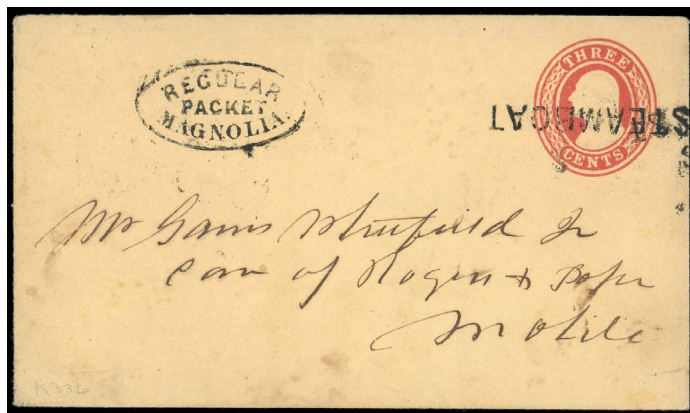 REGULAR
PACKET
MAGNOLIA.
THREE
CENTS
STEAMBOAT
Mr Gaius Whitfield Jr
Care of Rogers & Pope
Mobile
K332